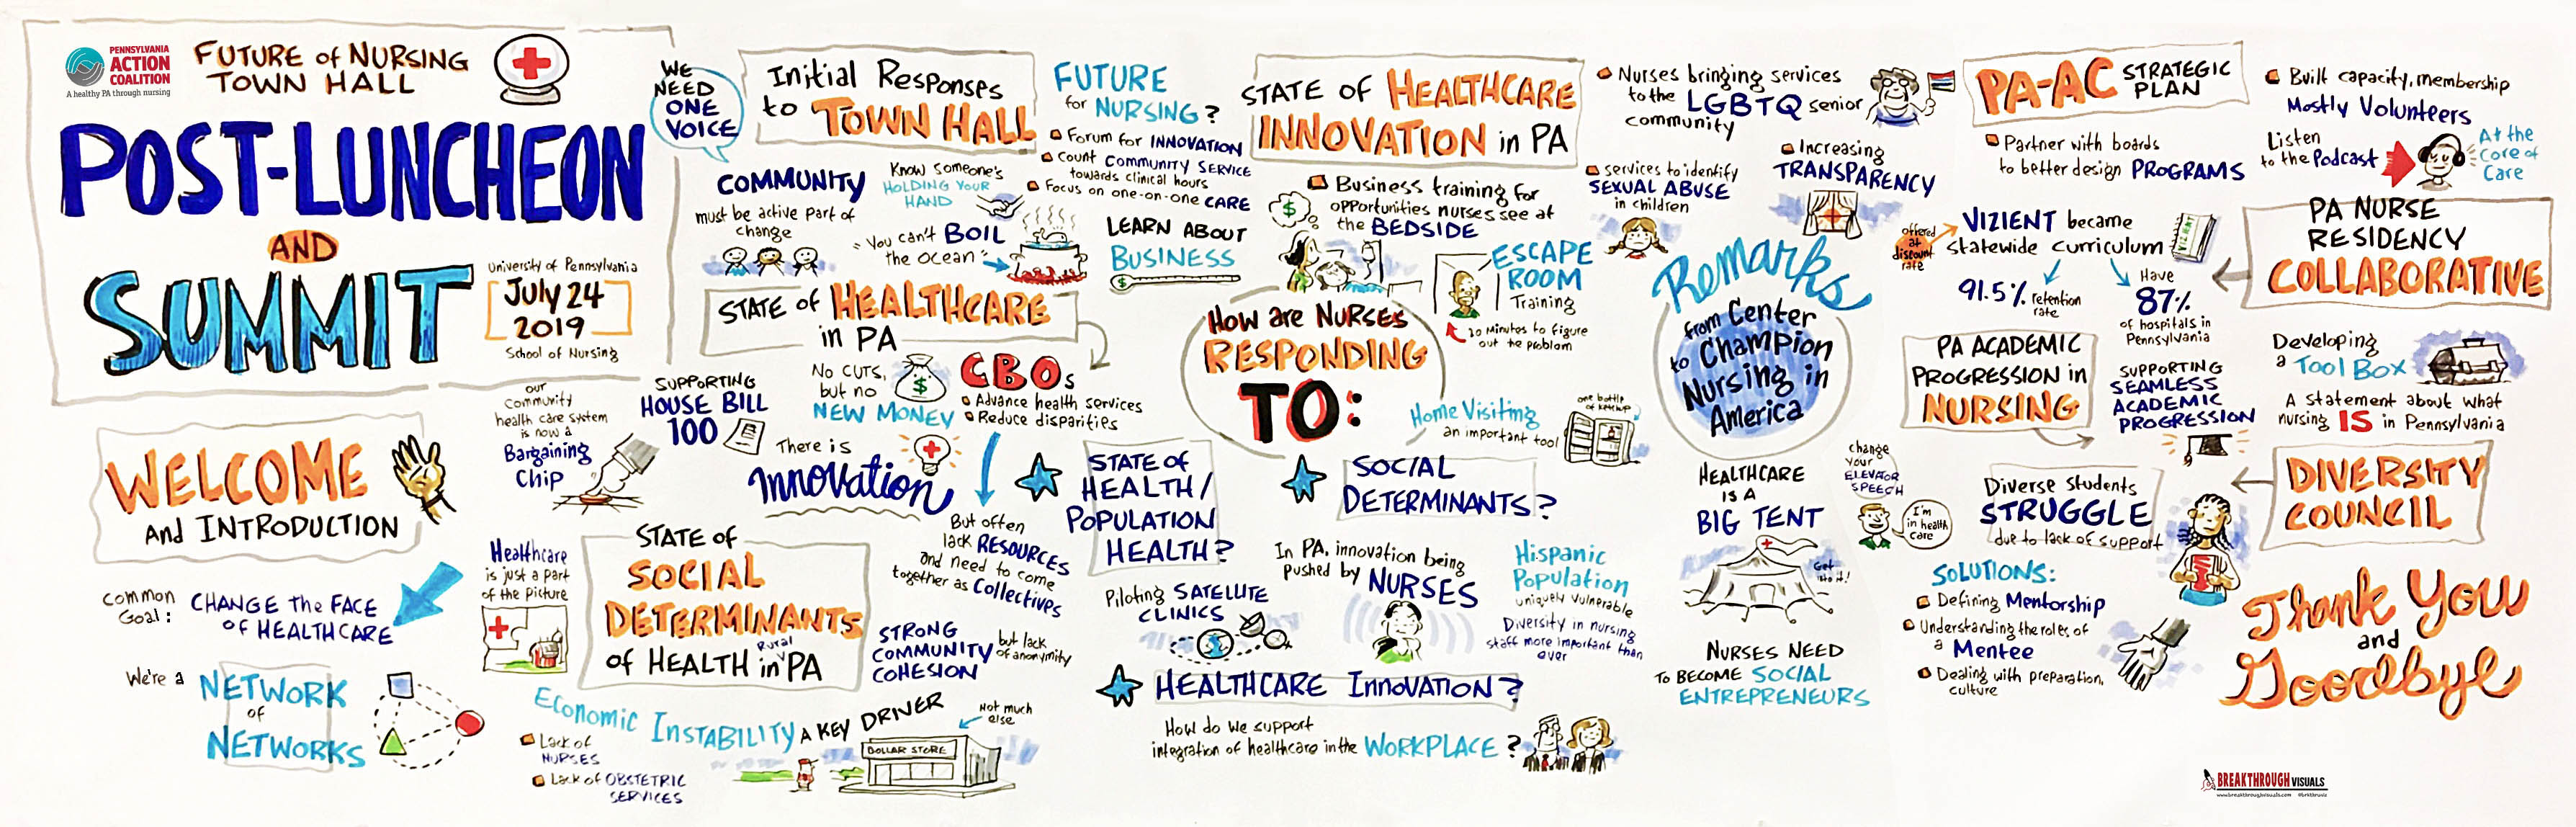 PENNSYLVANIA
ACTION
COALITION
A healthy PA through nursing
FUTURE of NURSING
TOWN HALL
POST-LUNCHEON
AND
SUMMIT
University of Pennsylvania
July 24
2019
School of Nursing
WELCOME
and INTRODUCTION
Common
Goal:
CHANGE the FACE
of HEALTHCARE
We're a
NETWORK
of
NETWORKS
WE
NEED
ONE
VOICE
Initial Responses
to TOWN HALL
COMMUNITY
must be active part of
change
Know someone's
HOLDING YOUR
HAND
"You can't BOIL
the ocean"
FUTURE
for NURSING?
Forum for INNOVATION
Count COMMUNITY SERVICE
towards clinical hours
Focus on one-on-one CARE
LEARN ABOUT
BUSINESS
STATE of HEALTHCARE
in PA
our
community
health care system
is now a
Bargaining
Chip
SUPPORTING
HOUSE BILL
100
NO CUTS,
but no
NEW MONEY
There is
Innovation
CBOs
Advance health services
Reduce disparities
But often
lack RESOURCES
and need to come
together as Collectives
Healthcare
is just a part
of the picture
STATE of
SOCIAL
DETERMINANTS
of HEALTH in Rural PA
STRONG
COMMUNITY
COHESION
but lack
of anonymity
Economic INSTABILITY A KEY DRIVER
Lack of
NURSES
Lack of OBSTETRIC
SERVICES
Not much
else
DOLLAR STORE
STATE of HEALTHCARE
INNOVATION in PA
Business training for
opportunities nurses see at
the BEDSIDE
ESCAPE
ROOM
Training
20 Minutes to figure
out the problem
Nurses bringing services
to the LGBTQ senior
community
services to identify
SEXUAL ABUSE
in children
Increasing
TRANSPARENCY
HOW are NURSES
RESPONDING
TO:
STATE of
HEALTH/
POPULATION
HEALTH?
Piloting SATELLITE
CLINICS
SOCIAL
DETERMINANTS?
Home Visiting
an important tool
one bottle
of ketchup
In PA, innovation being
pushed by NURSES
Hispanic
Population
uniquely vulnerable
Diversity in nursing
staff more important than
ever
HEALTHCARE INNOVATION?
How do we support
integration of healthcare in the WORKPLACE?
Remarks
from Center
to Champion
Nursing in
America
HEALTHCARE
IS A
BIG TENT
Get
into it!
change
your
ELEVATOR
SPEECH
I'm
in health
care
NURSES NEED
TO BECOME SOCIAL
ENTREPRENEURS
PA-AC STRATEGIC
PLAN
Partner with boards
to better design PROGRAMS
Built capacity, membership
Mostly Volunteers
Listen
to the Podcast
At the
Core of
Care
PA NURSE
RESIDENCY
COLLABORATIVE
VIZIENT became
statewide curriculum
offered
at
discount
rate
VIZIENT
91.5% retention
rate
Have
87%
of hospitals in
Pennsylvania
PA ACADEMIC
PROGRESSION in
NURSING
SUPPORTING
SEAMLESS
ACADEMIC
PROGRESSION
Developing
a Tool Box
A statement about what
nursing IS in Pennsylvania
DIVERSITY
COUNCIL
Diverse students
STRUGGLE
due to lack of support
SOLUTIONS:
Defining Mentorship
Understanding the roles of
a Mentee
Dealing with preparation,
culture
Thank You
and
Goodbye
BREAKTHROUGH VISUALS
www.breakthroughvisuals.com